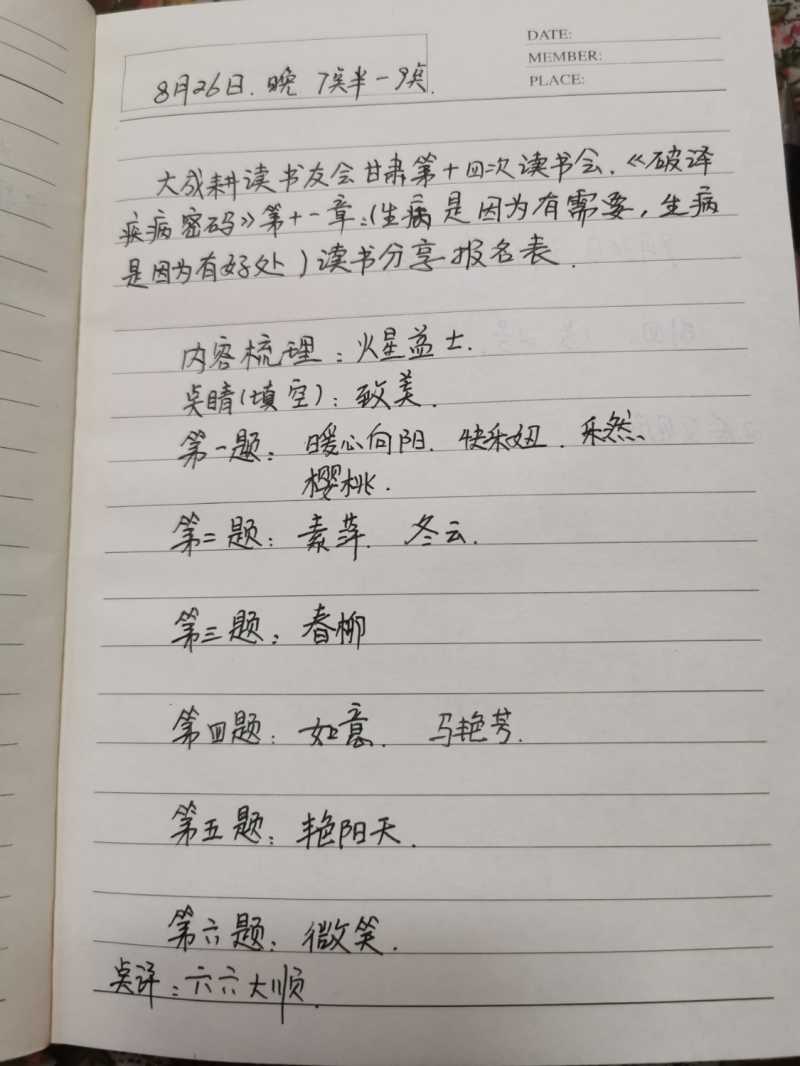 DATE:
MEMBER:
PLACE:
8月26日.晚 7点半-9点.
大成耕读书友会甘肃第十四次读书会.《破译
疾病密码》第十一章:(生病是因为有需要,生病
是因为有好处)读书分享报名表.
内容梳理:火星益士.
点睛(填空):致美.
第一题:暖心向阳. 快乐妞. 乐然.
樱桃.
第二题:素萍. 冬云.
第三题:春柳
第四题:如意. 马艳芳.
第五题:艳阳天.
第六题:微笑.
点评:六六大顺.